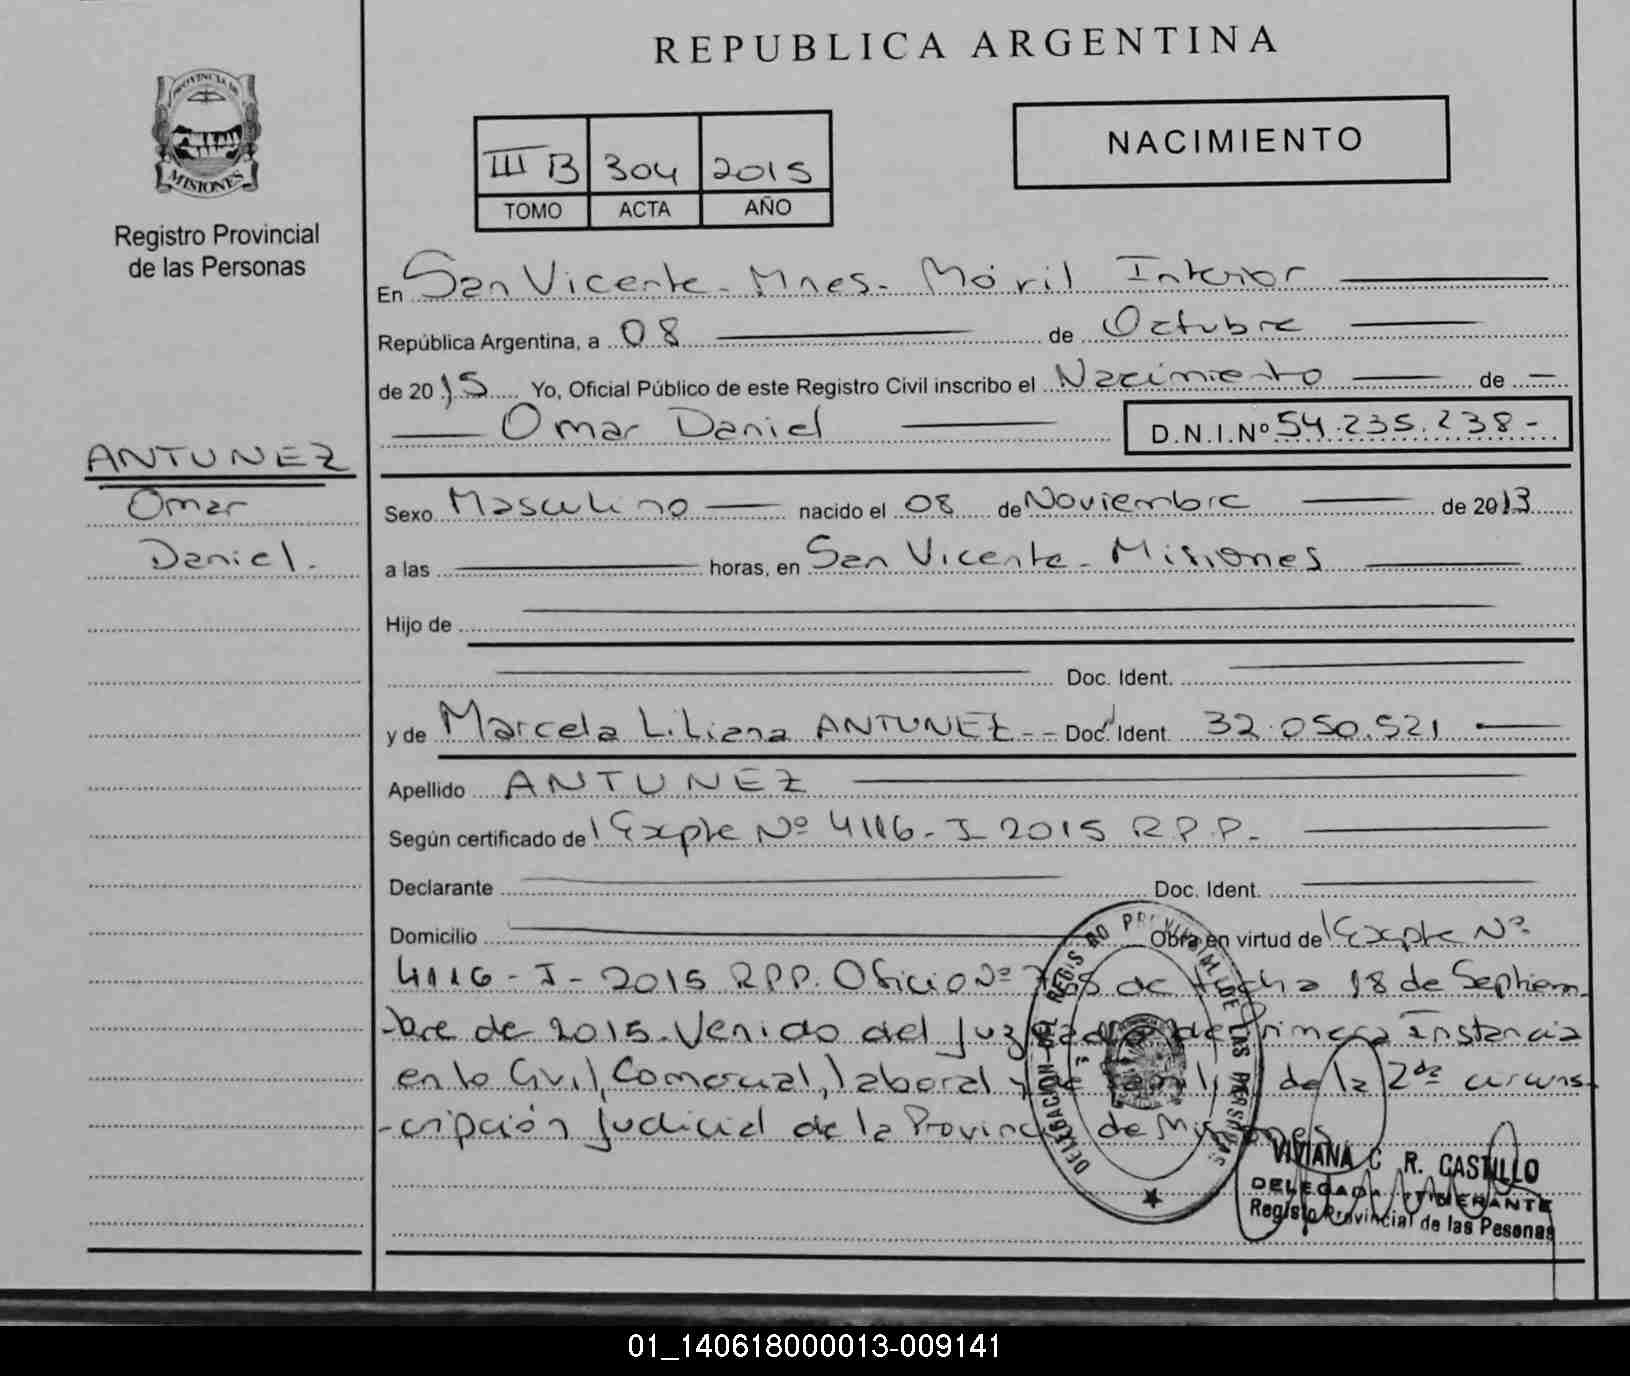 REPUBLICA ARGENTINA
PROVINCIA DE
MISIONES
Registro Provincial
de las Personas
III B 304 2015
TOMO ACTA AÑO
NACIMIENTO
En San Vicente - Mnes - Móvil Interior
República Argentina, a 08 de Octubre
de 2015 Yo, Oficial Público de este Registro Civil inscribo el Nacimiento de
Omar Daniel D.N.I.Nº 54.235.238-
ANTUNEZ
Omar
Daniel.
Sexo Masculino nacido el 08 de Noviembre de 2013
a las horas, en San Vicente - Misiones
Hijo de
Doc. Ident.
y de Marcela Liliana ANTUNEZ -- Doc. Ident. 32.050.521
Apellido ANTUNEZ
Según certificado de Expte Nº 4116-I-2015 R.P.P.-
Declarante Doc. Ident.
Domicilio Obra en virtud de Expte Nº
4116-I-2015 RPP. Oficio Nº de fecha 18 de Septiem-
-bre de 2015. Venido del Juzgado de Primera Instancia
en lo Civil, Comercial, laboral y de Familia de la 2da circuns-
-cripción Judicial de la Provincia de Misiones
DELEGACION DEL REGISTRO PROVINCIAL DE LAS PERSONAS
VIVIANA C. R. CASTILLO
DELEGADA ITINERANTE
Registo Provincial de las Pesonas
01_140618000013-009141